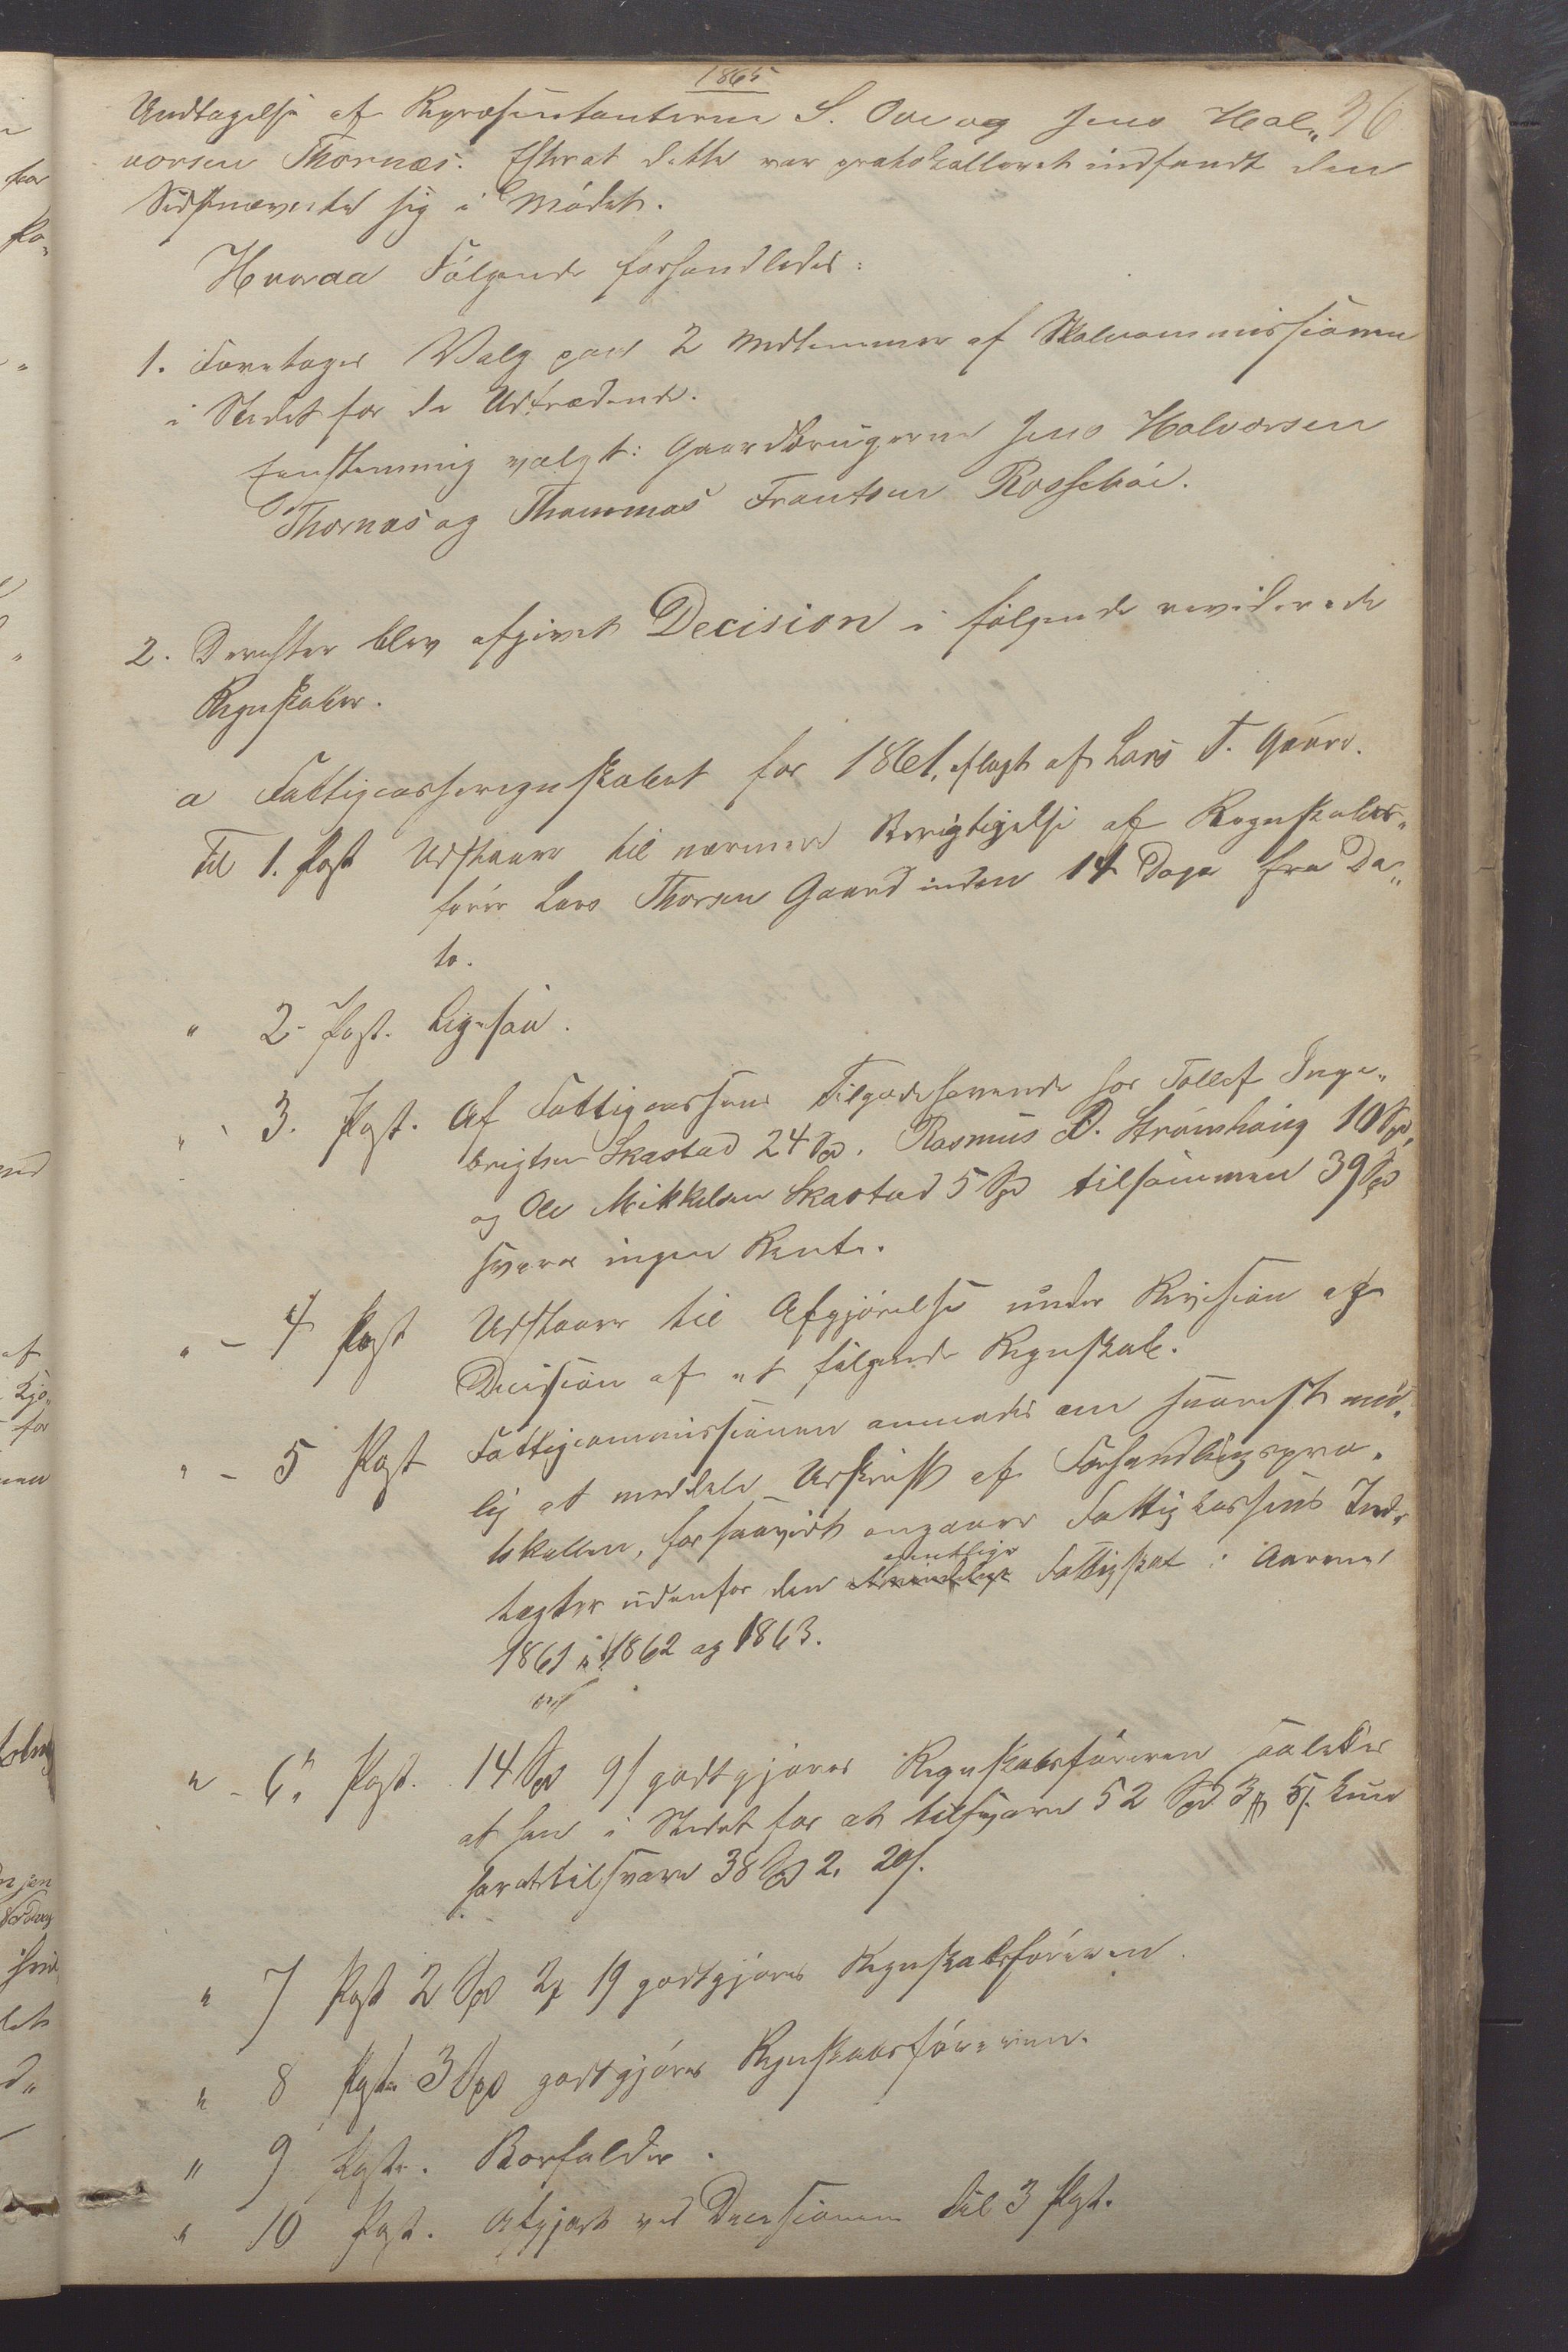 1865
36
Undtagelse af Repræsentanterne S. Ove og Jens Hal„
vorsen Thornæs. Efterat dette var protokolleret indfandt den
Sidstnævnte sig i Mødet.
Hvorpaa Følgende forhandledes:
1. Foretoges Valg paa 2 Medlemmer af Skolecommissionen
i Stedet for de Udtrædende.
Eenstemmig valgt: Gaardbrugerne Jens Halvorsen
Thornæs og Thommas Frantsen Rossebøe.
2. Derefter blev afgivet Decision i følgende reviderede
Regnskaber.
a Fattigcasseregnskabet for 1861, aflagt af Lars T. Gaard.
Til 1. Post Udstaaer til nærmere Berigtigelse af Regnskabs„
fører Lars Thorsen Gaard inden 14 Dage fra Da„
to.
" 2- Post. Ligesaa.
" - 3. Post. Af Fattigcassens Tilgodehavende hos Tollef Inge„
brigtsen Skastad 24 Spd. Rasmus D. Strømhoug 10 Spd,
og Ole Mikkelsen Skastad 5 Spd tilsammen 39 Spd
svares ingen Rente.
" - 4 Post Udstaaer til Afgjørelse under Revision og
Decision af et følgende Regnskab.
" - 5 Post Fattigcommissionen anmodes om snarest mu„
lig at meddele Udskrift af Forhandlingspro„
tokollen, forsaavidt angaaer Fattigkassens Ind„
tægter udenfor den egentlige Fattigskat i Aarene
1861 1862 og 1863.
" - 6" Post. 14 Spd 9 s godtgjøres Regnskabsføreren saaledes
at han i Stedet for at tilsvare 52 Spd. 3 ort 5 s. kun
har at tilsvare 38 Spd 2. 20 s.
" 7 Post 2 Spd 2 ort 19 godtgjøres Regnskabsføreren.
" 8 Post. 3 Spd godtgjøres Regnskabsføreren.
" 9 Post. Bortfalder.
" 10 Post. Afgjort ved Decisionen til 3 Post.